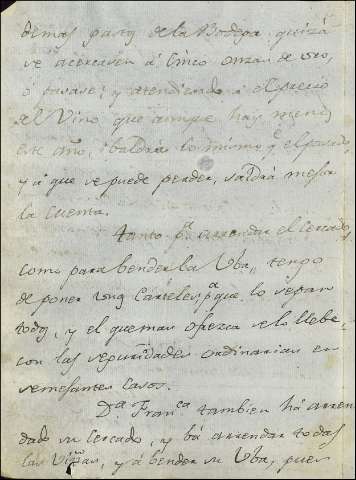 demas partes de la Bodega quizá
se acercasen á Cinco onzas de oro,
ó pasase; y atendiendo á el precio
del Vino, que aunque hay menos
este año, valdra lo mismo q.e el pasado,
y á que se puede perder, saldrá mejor
la cuenta.
Tanto p.a arrendar el Cercado,
como para bender la Uba, tengo
de poner unos Carteles p.a que lo sepan
todos, y el que mas ofrezca se lo llebe,
con las seguridades ordinarias en
semejantes casos.
D.a Fran.ca tambien há arren
dado su Cercado, y bá arrendar todas
las Viñas, y á bender su Uba, pues